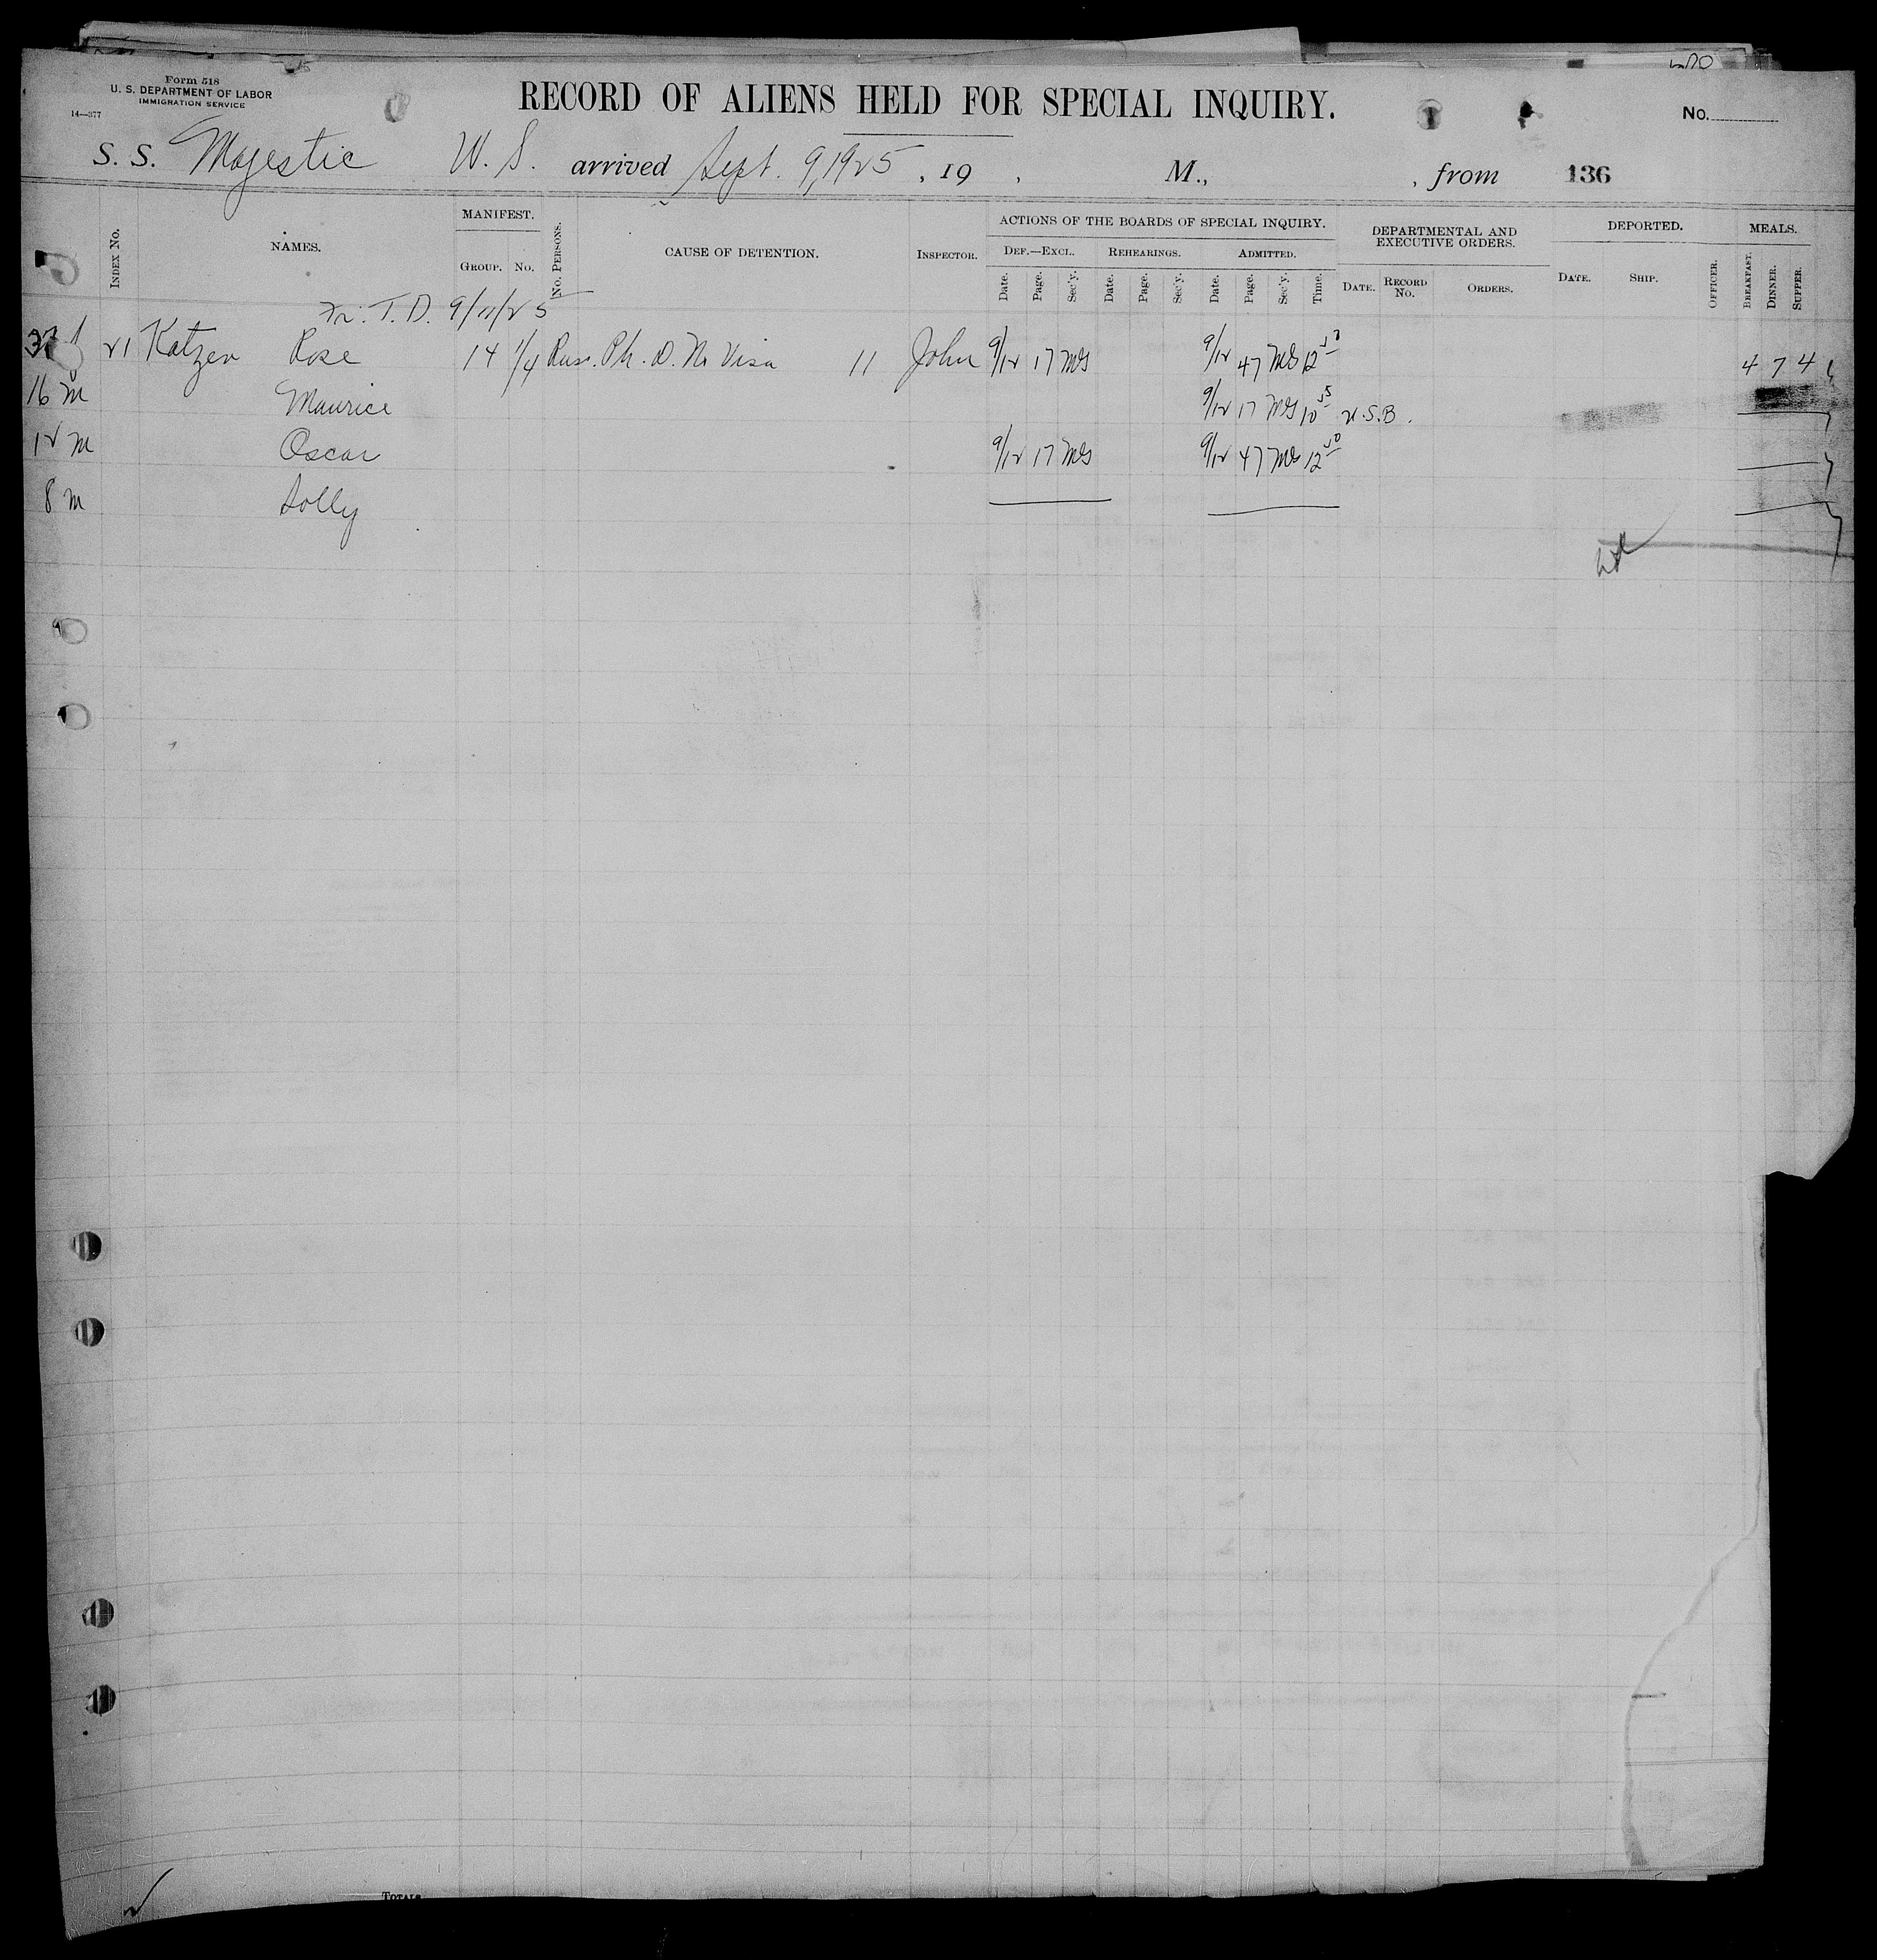 Form 518
U. S. DEPARTMENT OF LABOR
IMMIGRATION SERVICE
14—377
RECORD OF ALIENS HELD FOR SPECIAL INQUIRY.
No.
S. S. Majestic W. S. arrived Sept. 9, 1925, 19 , M., , from 136
INDEX No.
NAMES.
MANIFEST.
GROUP. No.
No. PERSONS.
CAUSE OF DETENTION.
INSPECTOR.
ACTIONS OF THE BOARDS OF SPECIAL INQUIRY.
DEF.—EXCL. REHEARINGS. ADMITTED.
Date. Page. Sec'y. Date. Page. Sec'y. Date. Page. Sec'y. Time.
DEPARTMENTAL AND EXECUTIVE ORDERS.
DATE. RECORD No. ORDERS.
DEPORTED.
DATE. SHIP. OFFICER.
MEALS.
BREAKFAST. DINNER. SUPPER.
Fr. T. D. 9/11/25
21 Katzen Rose 14 1/4 Rus. Ph. D. No Visa 11 John 9/12 17 9/12 47 12 50 4 7 4
16 m Maurice 9/12 17 10 55 U.S.B.
12 m Oscar 9/12 17 9/12 47 12 50
8 m Solly
TOTALS